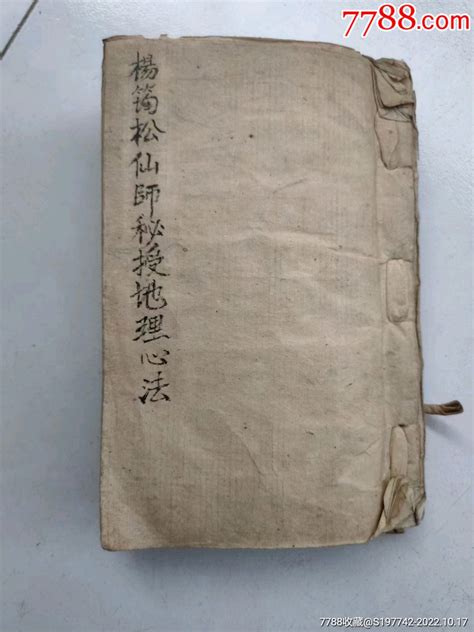 7788.com
楊筠松仙師秘授地理心法
7788收藏@S197742-2022.10.17